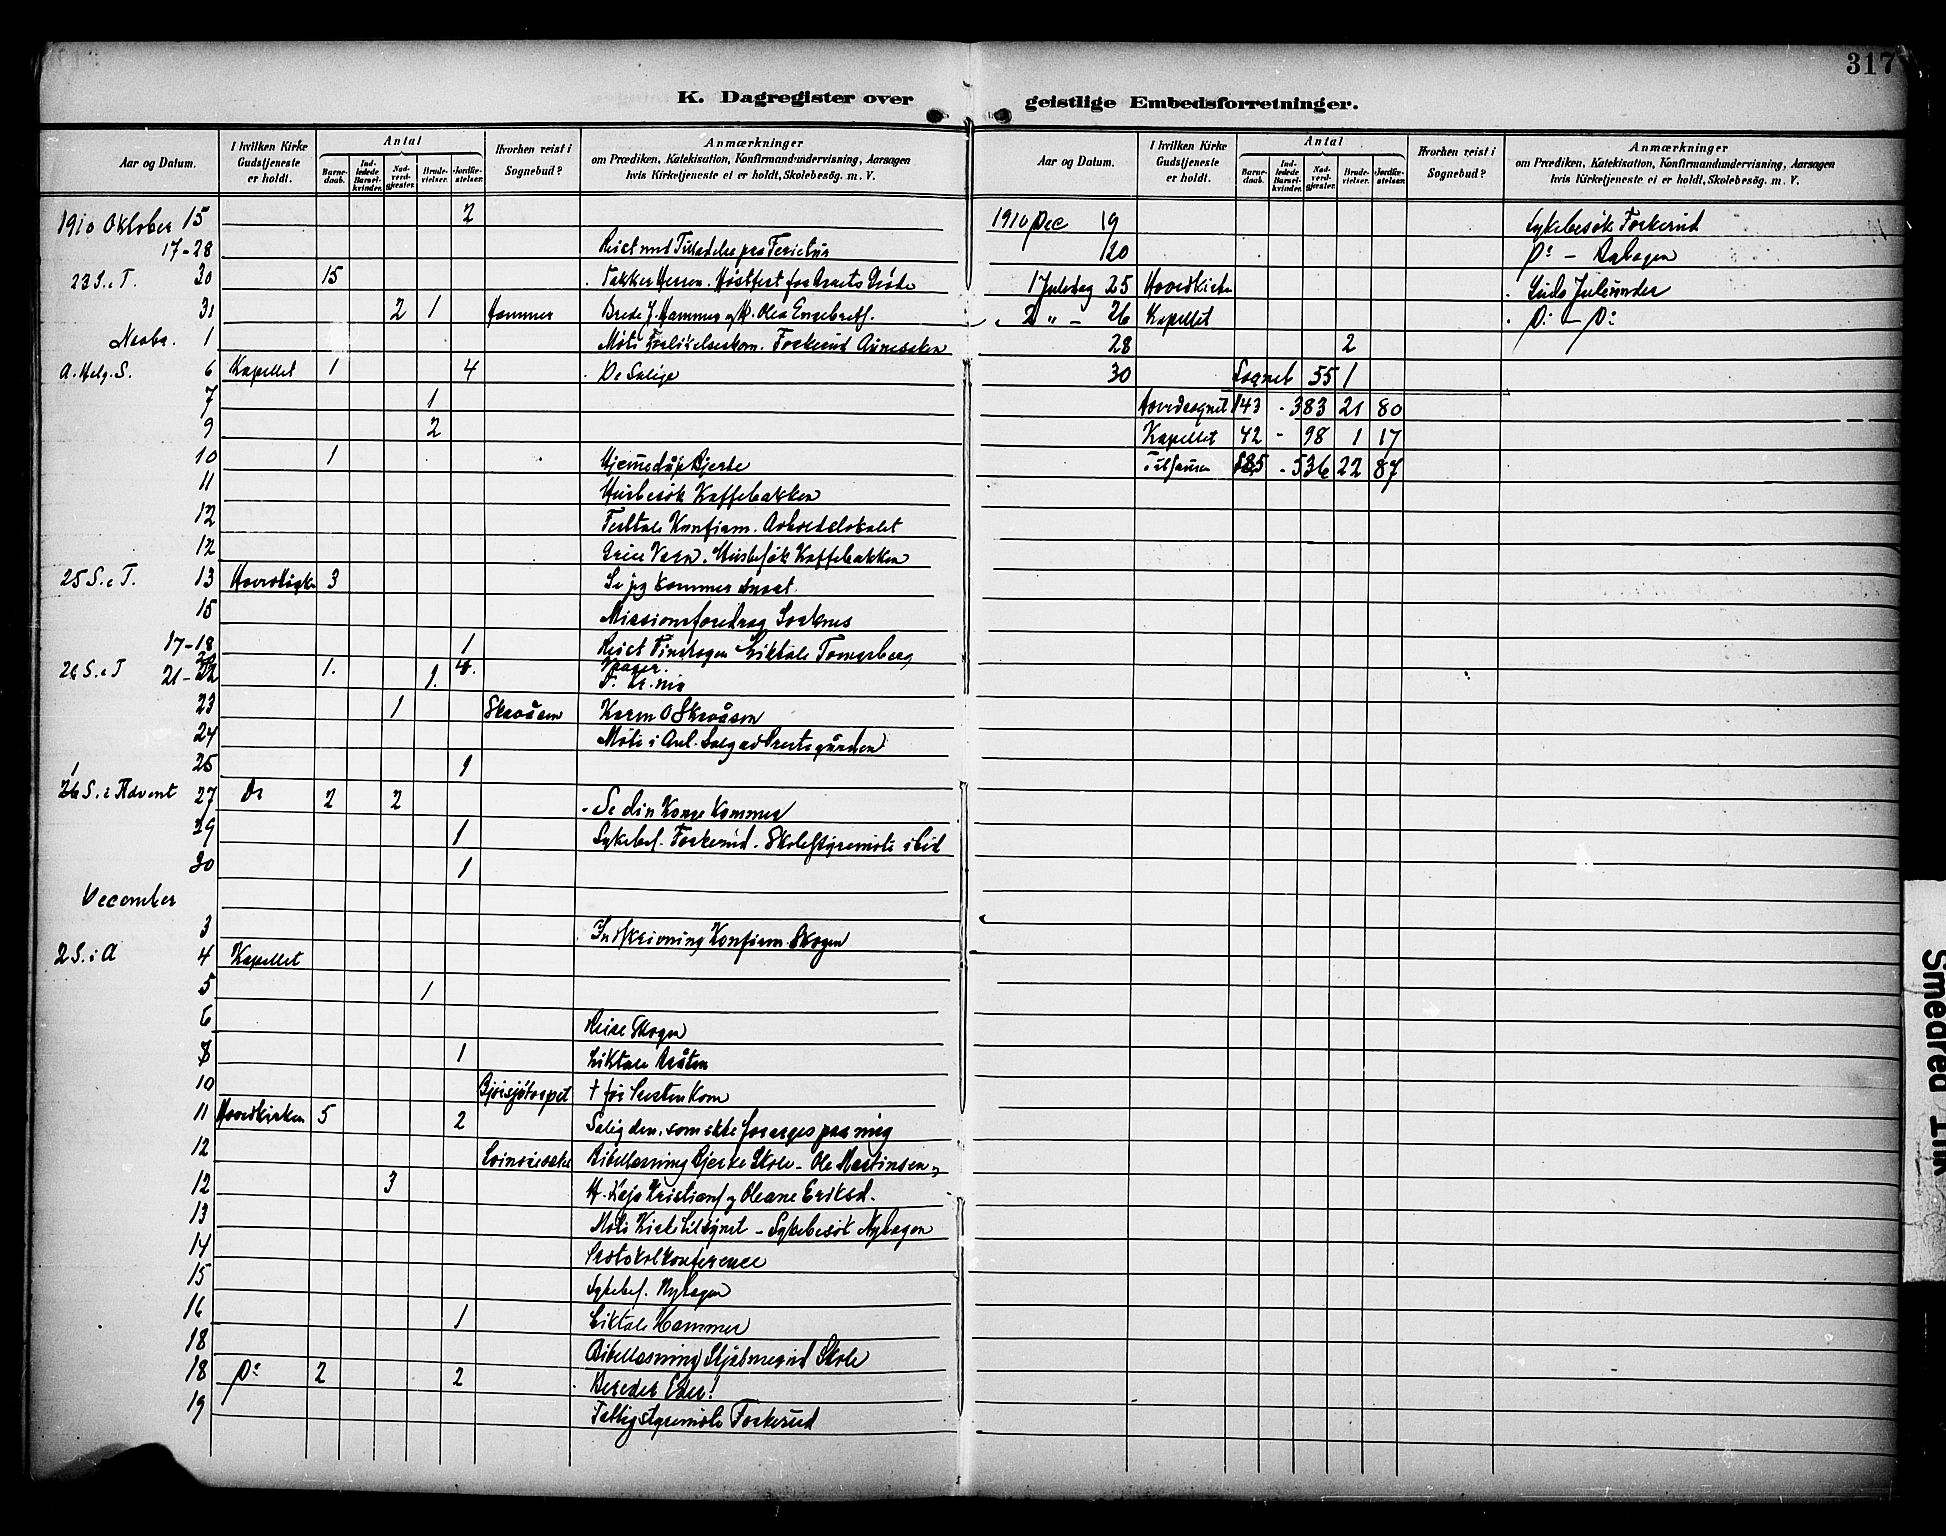 317
K. Dagregister over geistlige Embedsforretninger.
Aar og Datum. I hvilken Kirke Gudstjeneste er holdt. Antal Barnedaab. Indledede Barselkvinder. Nadverdgjæster. Brudevielser. Jordfæstelser. Hvorhen reist i Sognebud? Anmærkninger om Prædiken, Katekisation, Konfirmandundervisning, Aarsagen hvis Kirketjeneste ei er holdt, Skolebesøg. m. V.
1910 Oktober 15 2
17-28 Reist med Tilladelse paa Ferietur
23 S. e. T. 30 15 Takker Herren. Høstfest for Aarets Grøde
31 2 1 Hammer Brede J. Hammer og H. Olea Engebretf.
Novbr. 1 Møte Forlikelseskom. Fockerud
A. Helg. S. 6 Kapellet 1 4 De Salige
7 1
9 2
10 1 Hjemmedåp Bjerke
11 Husbesøk Kaffebakken
12 Festtale Konfirm. Arbeidslokalet
12 Husbesøk Kaffebakken
25 S. e. T. 13 Hovedkirken 3 Se jeg kommer snart
15 Missionsforedrag Sorknes
17-18 1 Reist Finskogen Liktale Tomasberg
26 S. e. T 20 1. 4.
21-22 1. T. Kr.nia
23 1 Skroåsen Karen O Skroåsen
24 Møte i Anl. Salg av Prestegården
25 1
1 S. i Advent 27 Do 2 2 Se din Konge kommer
29 1 Sykebes. Fockerud. Skolestyremøte ibid
30 1
December
3 Indskrivning Konfirm. Skogen
2 S. i A 4 Kapellet
5 1
6 Reise Skogen
8 1 Liktale Bråten
10 Bjørsjøtorpet † før Presten kom
11 Hovedkirken 5 2 Salig den, som ikke forarges paa mig
12 Bibellæsning Bjerke Skole - Ole Martinsen og
12 3 H. Kaja Kristians og Oleane Eriksd.
13 Møte Kirketilsynet - Sykebesøk Nyhagen
14 Protokolkonference
15 Sykebes. Nyhagen
16 1 Liktale Hammer
18 Bibellæsning Hjalmerud Skole
18 Do 2 2 Bereder Eder!
19 Fattigstyremøte Fockerud
Aar og Datum. I hvilken Kirke Gudstjeneste er holdt. Antal Barnedaab. Indledede Barselkvinder. Nadverdgjæster. Brudevielser. Jordfæstelser. Hvorhen reist i Sognebud? Anmærkninger om Prædiken, Katekisation, Konfirmandundervisning, Aarsagen hvis Kirketjeneste ei er holdt, Skolebesøg. m. V.
1910 Dec 19 Sykebesøk Fockerud
20 Do -
1 Juledag 25 Hovedkirken Guds Juleunder
2 " - 26 Kapellet Do - Do
28 2
30 Sognet 55 1
Hovedsognet 143 - 383 21 80
Kapellet 42 - 98 1 17
Tilsammen 185 - 536 22 87
Smeared Ink